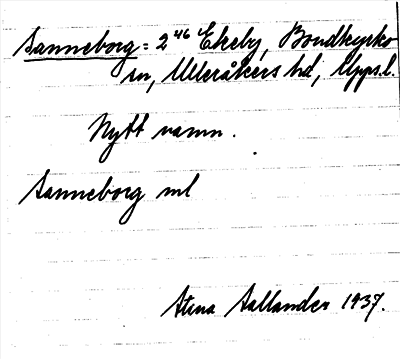 Sanneborg = 2⁴⁶ Ekeby, Bondkyrko
sn, Ulleråkers hd, Upps. l.
Nytt namn.
Sanneborg ml
Stina Sallander 1937.